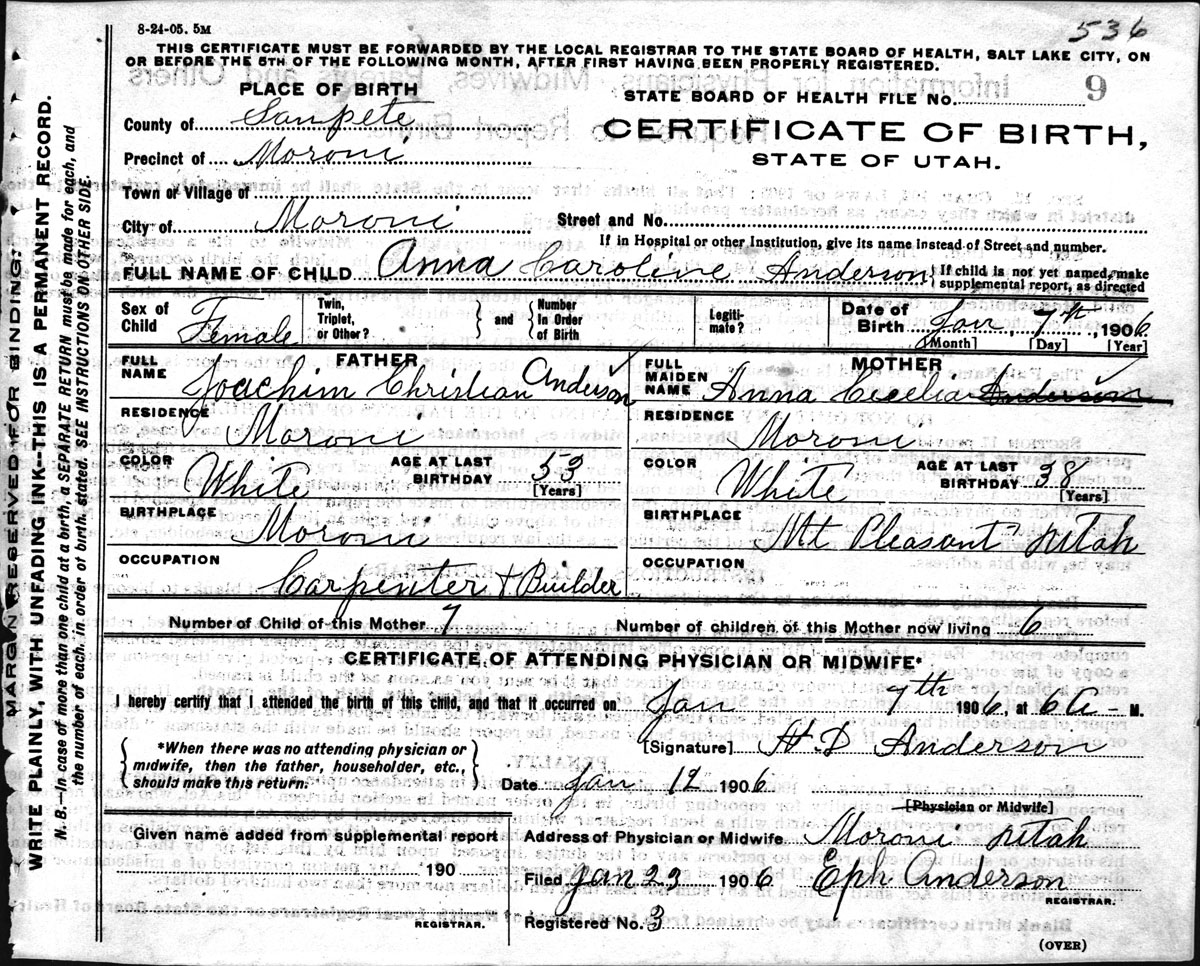 8-24-05. 5M
536
THIS CERTIFICATE MUST BE FORWARDED BY THE LOCAL REGISTRAR TO THE STATE BOARD OF HEALTH, SALT LAKE CITY, ON
OR BEFORE THE 5TH OF THE FOLLOWING MONTH, AFTER FIRST HAVING BEEN PROPERLY REGISTERED.
PLACE OF BIRTH
STATE BOARD OF HEALTH FILE No. 9
County of Sanpete
CERTIFICATE OF BIRTH,
STATE OF UTAH.
Precinct of Moroni
Town of Village of
City of Moroni Street and No.
If in Hospital or other Institution, give its name instead of Street and number.
FULL NAME OF CHILD Anna Caroline Anderson { If child is not yet named, make supplemental report, as directed
Sex of Child Female Twin, Triplet, or Other? } and { Number In Order of Birth Legiti-mate? Date of Birth Jan, 7th, 1906
[Month] [Day] [Year]
FATHER MOTHER
FULL NAME Joachim Christian Anderson FULL MAIDEN NAME Anna Cecelia Anderson
RESIDENCE Moroni RESIDENCE Moroni
COLOR White AGE AT LAST BIRTHDAY 53 [Years] COLOR White AGE AT LAST BIRTHDAY 38 [Years]
BIRTHPLACE Moroni BIRTHPLACE Mt Pleasant Utah
OCCUPATION Carpenter & Builder OCCUPATION
Number of Child of this Mother 7 Number of children of this Mother now living 6
CERTIFICATE OF ATTENDING PHYSICIAN OR MIDWIFE*
I hereby certify that I attended the birth of this child, and that it occurred on Jan 7th 1906, at 6 A- M.
{ *When there was no attending physician or midwife, then the father, householder, etc., should make this return. } [Signature] H. D Anderson
Date Jan 12 1906
[Physician or Midwife]
Given name added from supplemental report
190
REGISTRAR.
Address of Physician or Midwife Moroni Utah
Filed Jan 23 1906 Eph Anderson
REGISTRAR.
Registered No. 3
(OVER)
MARGIN RESERVED FOR BINDING.
WRITE PLAINLY, WITH UNFADING INK--THIS IS A PERMANENT RECORD.
N. B.—In case of more than one child at a birth, a SEPARATE RETURN must be made for each, and
the number of each, in order of birth, stated. SEE INSTRUCTIONS ON OTHER SIDE.